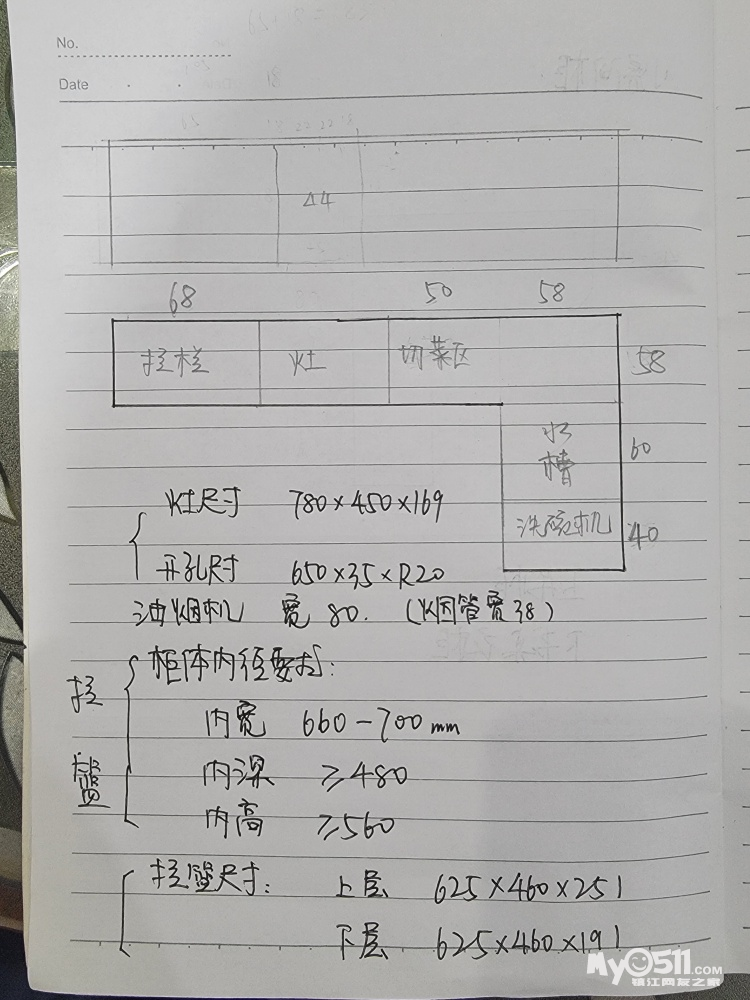 No.
Date
44
68 50 58
拉栏 灶 切菜区 58
水槽 60
洗碗机 40
灶尺寸 780×450×169
开孔尺寸 650×35×R20
油烟机 宽80. (烟管宽38)
拉篮
柜体内径要求:
内宽 660-700mm
内深 ≥480
内高 ≥560
拉篮尺寸: 上层 625×460×251
下层 625×460×191
My0511.COM
镇江网友之家